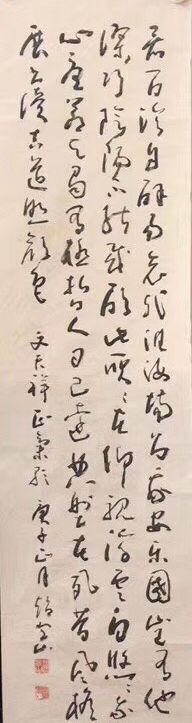 暑百沴自辟易哀哉沮洳場為我安樂國豈有他
繆巧陰陽不能賊顧此耿々在仰視浮雲白悠々我
心悲蒼天曷有極哲人日已遠典型在夙昔風檐
展書讀古道照顏色 文天祥正氣歌 庚子正月